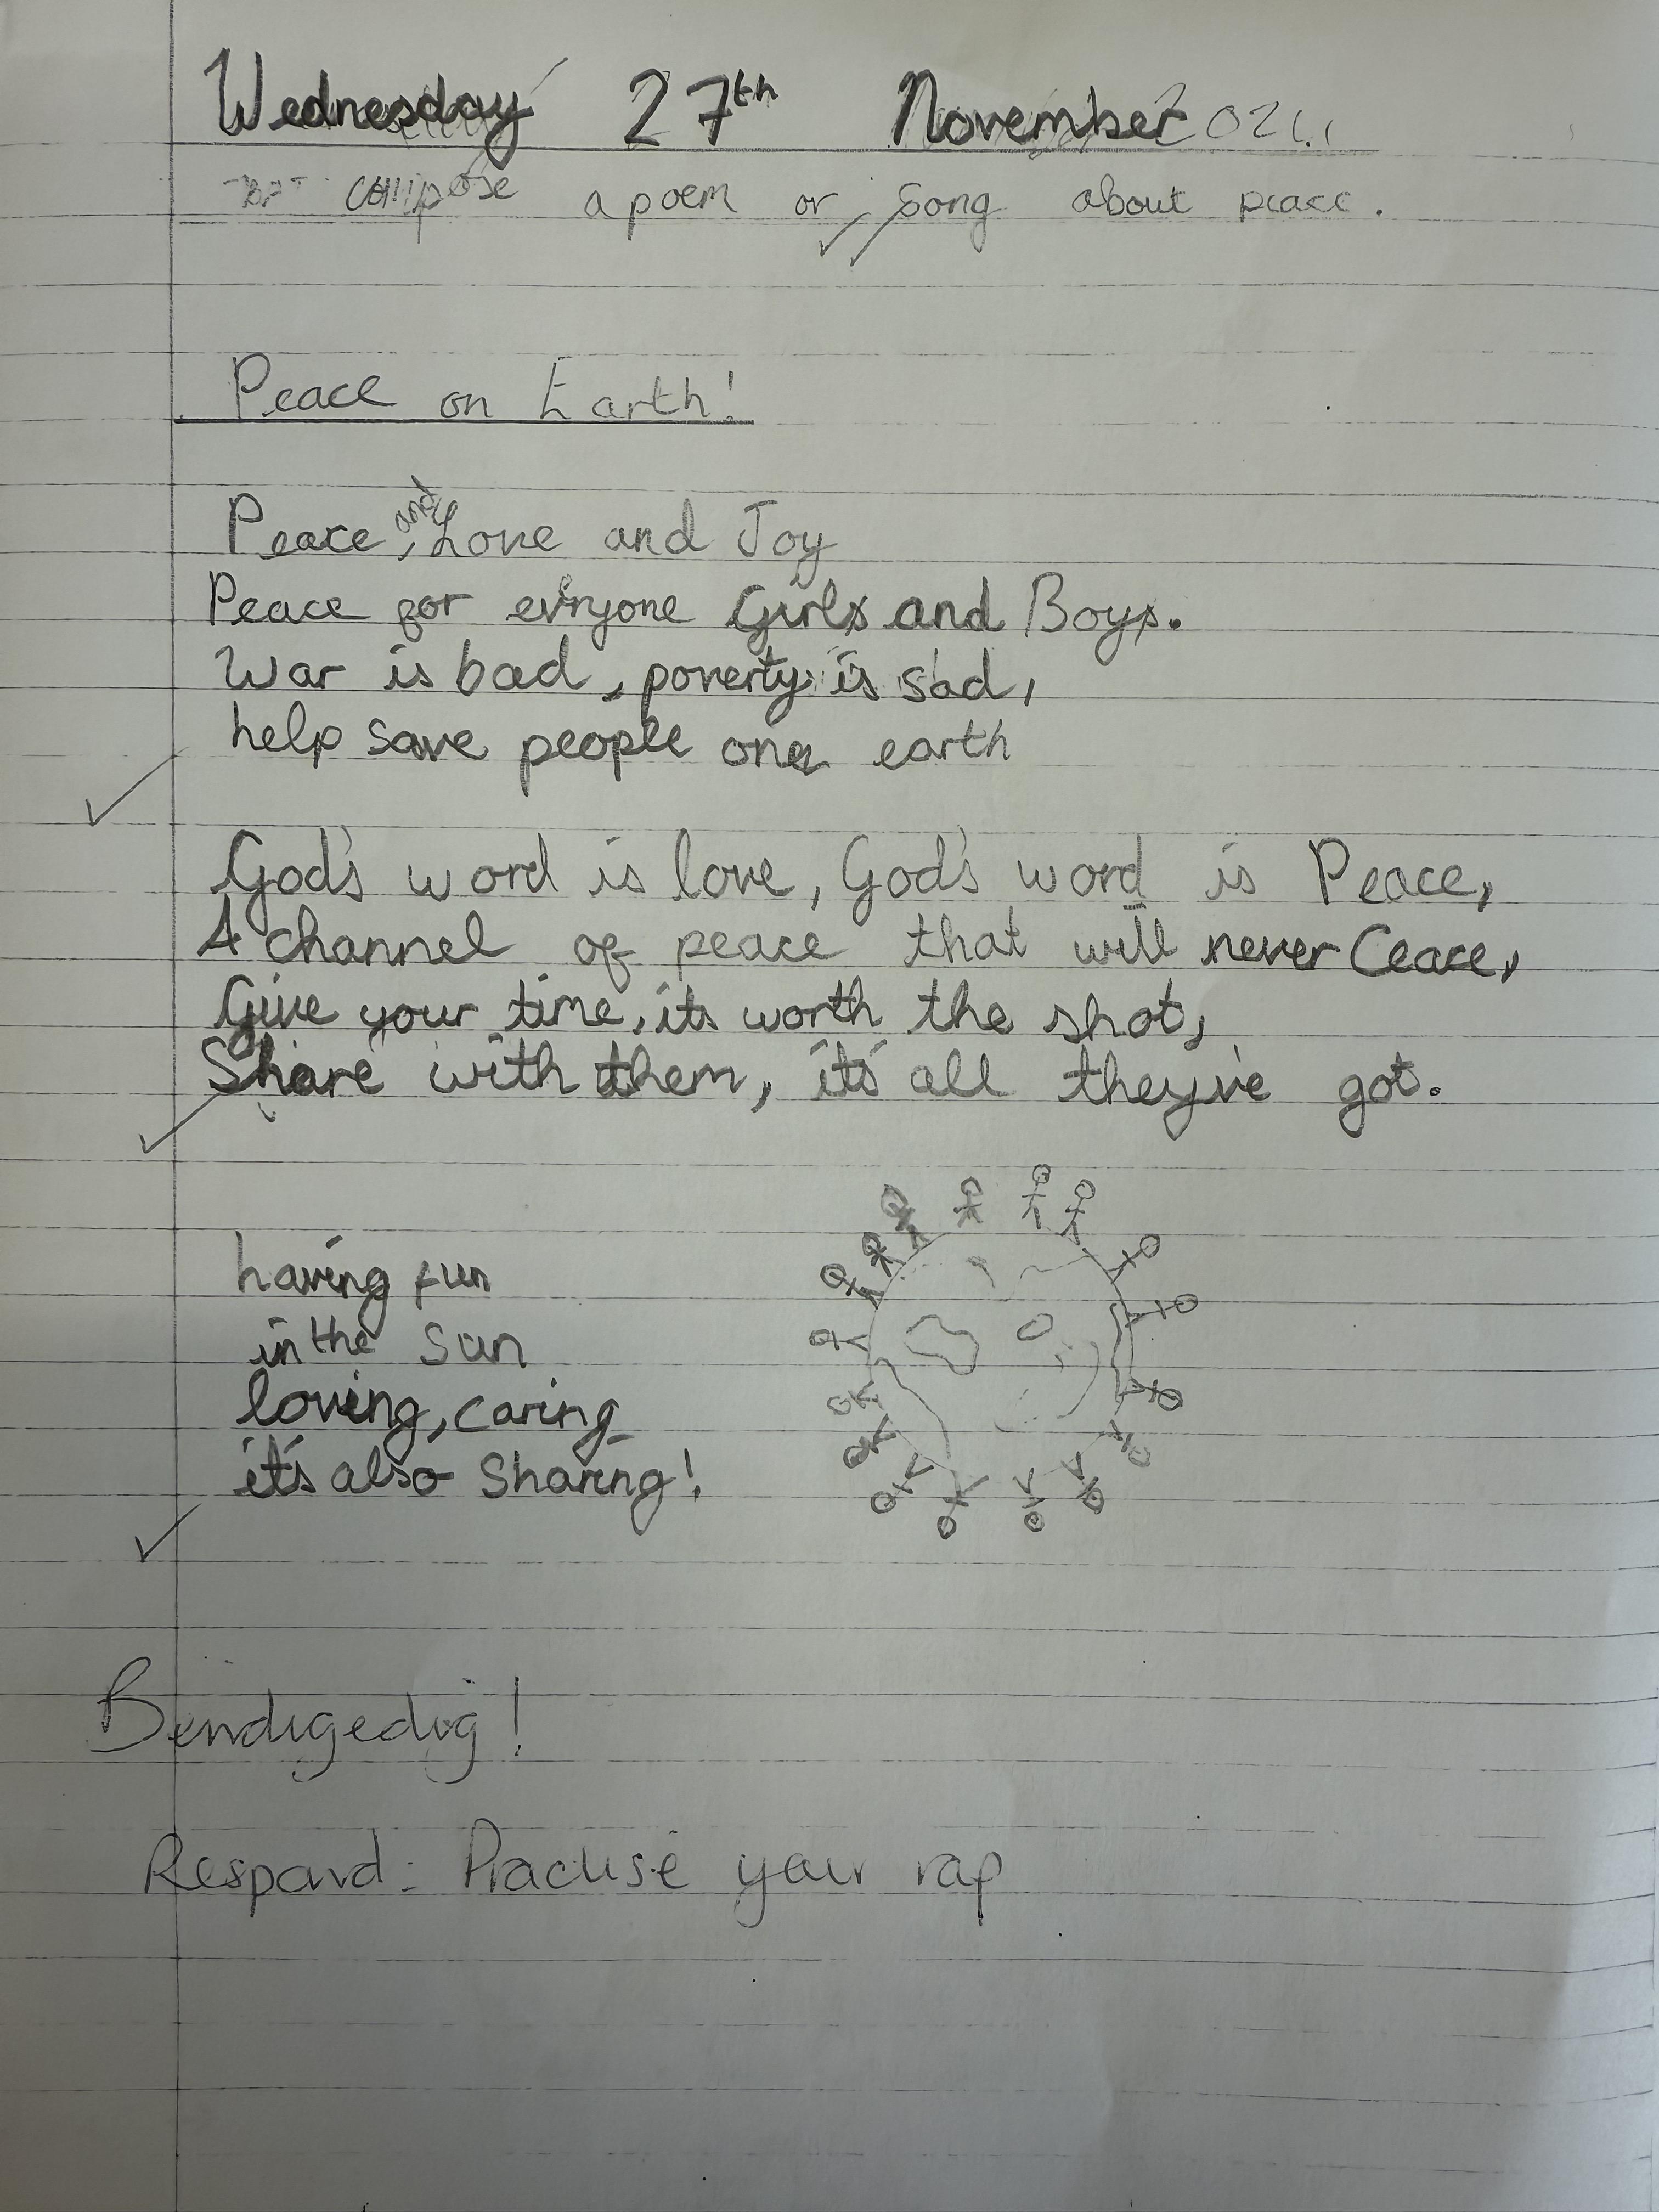 Wednesday 27th November
compose a poem or song about peace.
Peace on Earth!
Peace, and Love and Joy
Peace for evryone Girls and Boys.
War is bad, poverty is sad,
help save people on earth
God's word is love, God's word is Peace,
A channel of peace that will never Ceace,
Give your time, its worth the shot,
Share with them, it's all they've got.
having fun
in the sun
loving, caring
it's also Sharing!
Bendigedig!
Respond: Practise your rap